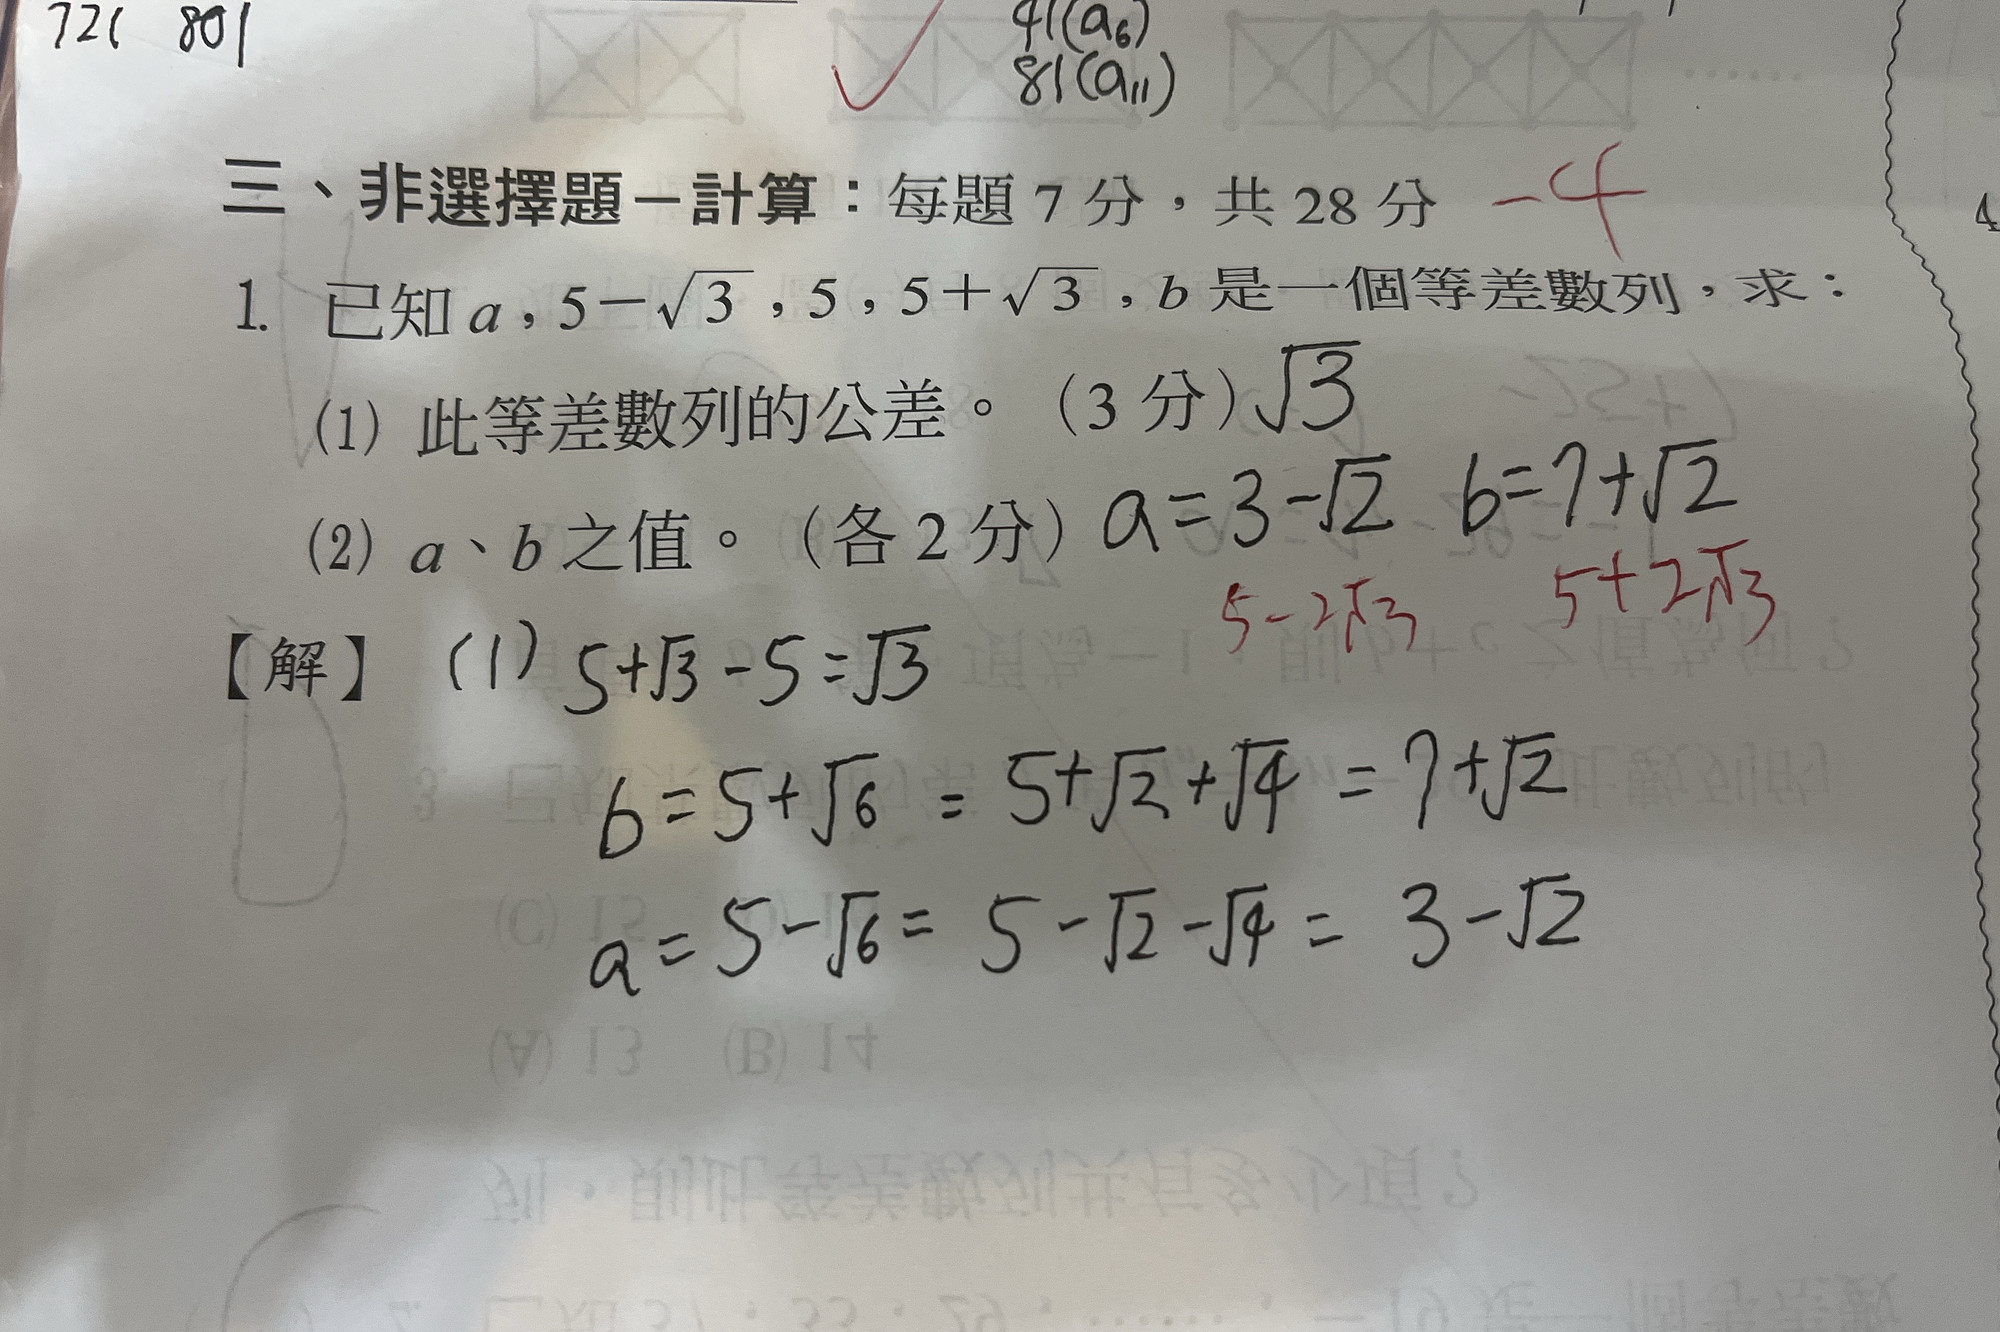 721 801
41(a₆)
81(a₁₁)
三、非選擇題－計算：每題 7 分，共 28 分 -4
1. 已知 a，5－√3，5，5＋√3，b 是一個等差數列，求：
(1) 此等差數列的公差。（3 分）√3
(2) a、b 之值。（各 2 分）a=3-√2 b=7+√2
5-2√3 5+2√3
【解】 (1) 5+√3-5=√3
b=5+√6 = 5+√2+√4 = 7+√2
a=5-√6 = 5-√2-√4 = 3-√2